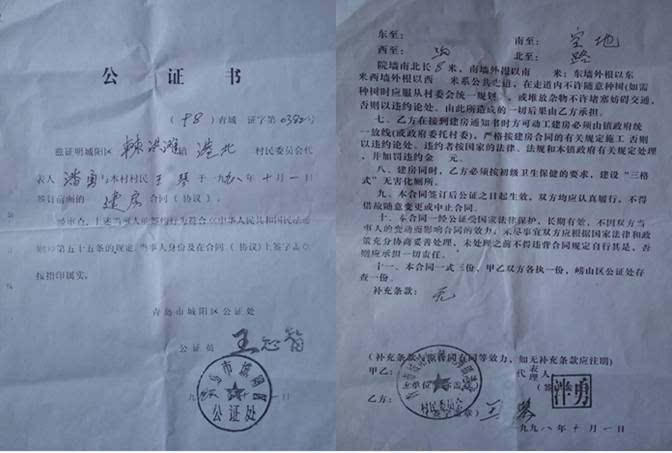 公 证 书
(98)青城 证字第0382号
兹证明城阳区 棘洪滩镇 港北 村民委员会代
表人 潘勇 与本村村民 王琴 于一九九八年十月一日
签订前面的 建房 合同(协议)。
经审查,上述当事人的签约行为符合《中华人民共和国民法通
则》第五十五条的规定,当事人身份及在合同(协议)上签字盖章、
按指印属实。
青岛市城阳区公证处
公证员
青岛市城阳区
公证处
东至: 南至: 空地
西至: 沟 北至: 路
院墙南北长8米,南墙外根以南 米;东墙外根以东
米西墙外根以西 米系公共走道,在走道内不许随意种树(如需
种树时应服从村委会统一规划),或堆放杂物不许堵塞妨碍交通,
否则以违约论处。由此所造成的一切后果由乙方承担。
七、乙方在接到建房通知书时方可动工建房必须由镇政府统
一放线(或政府委托村委),严格按建房合同的有关规定施工 否则
以违约论处。违约者按国家的法律、法规和本镇政府有关规定处理
,并加罚违约金 元。
八、建房同时,乙方必须按初级卫生保健的要求,建设“三格
式”无害化厕所。
九、本合同签订后公证之日起生效,双方均应认真履行,不得
借故随意变更或中止合同。
十、本合同一经公证受国家法律保护,长期有效,不因双方当
事人的变动而影响合同的效力。未尽事宜双方应根据国家法律和政
策充分协商妥善处理,未处理之前不得违背合同规定自行其是,否
则应承担一切责任。
十一、本合同一式三份,甲乙双方各执一份,崂山区公证处存
查一份。
补充条款: 无
(补充条款与原合同有同等效力,如无补充条款应注明)
甲乙: 代表人
村民委员会
乙方: 王琴
一九九八年十月一日